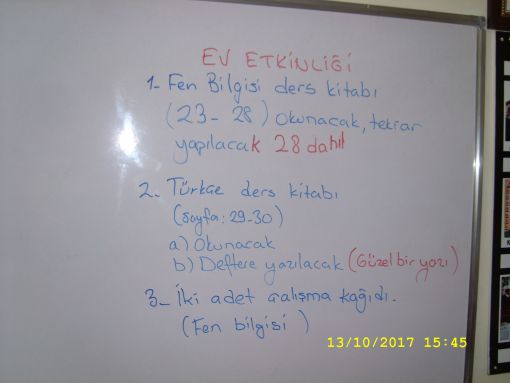 EV ETKİNLİĞİ
1- Fen Bilgisi ders kitabı
(23-28) okunacak, tekrar
yapılacak 28 dahil
2- Türkçe ders kitabı
(Sayfa: 29-30)
a) Okunacak
b) Deftere yazılacak (Güzel bir yazı)
3- İki adet çalışma kağıdı.
(Fen bilgisi)
13/10/2017 15:45